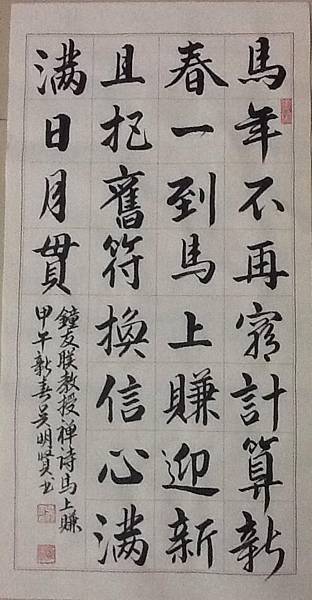 馬年不再窮計算新
春一到馬上賺迎新
且把舊符換信心滿
滿日月貫
鐘友朕教授禅诗馬上賺
甲午新春吴明賢书